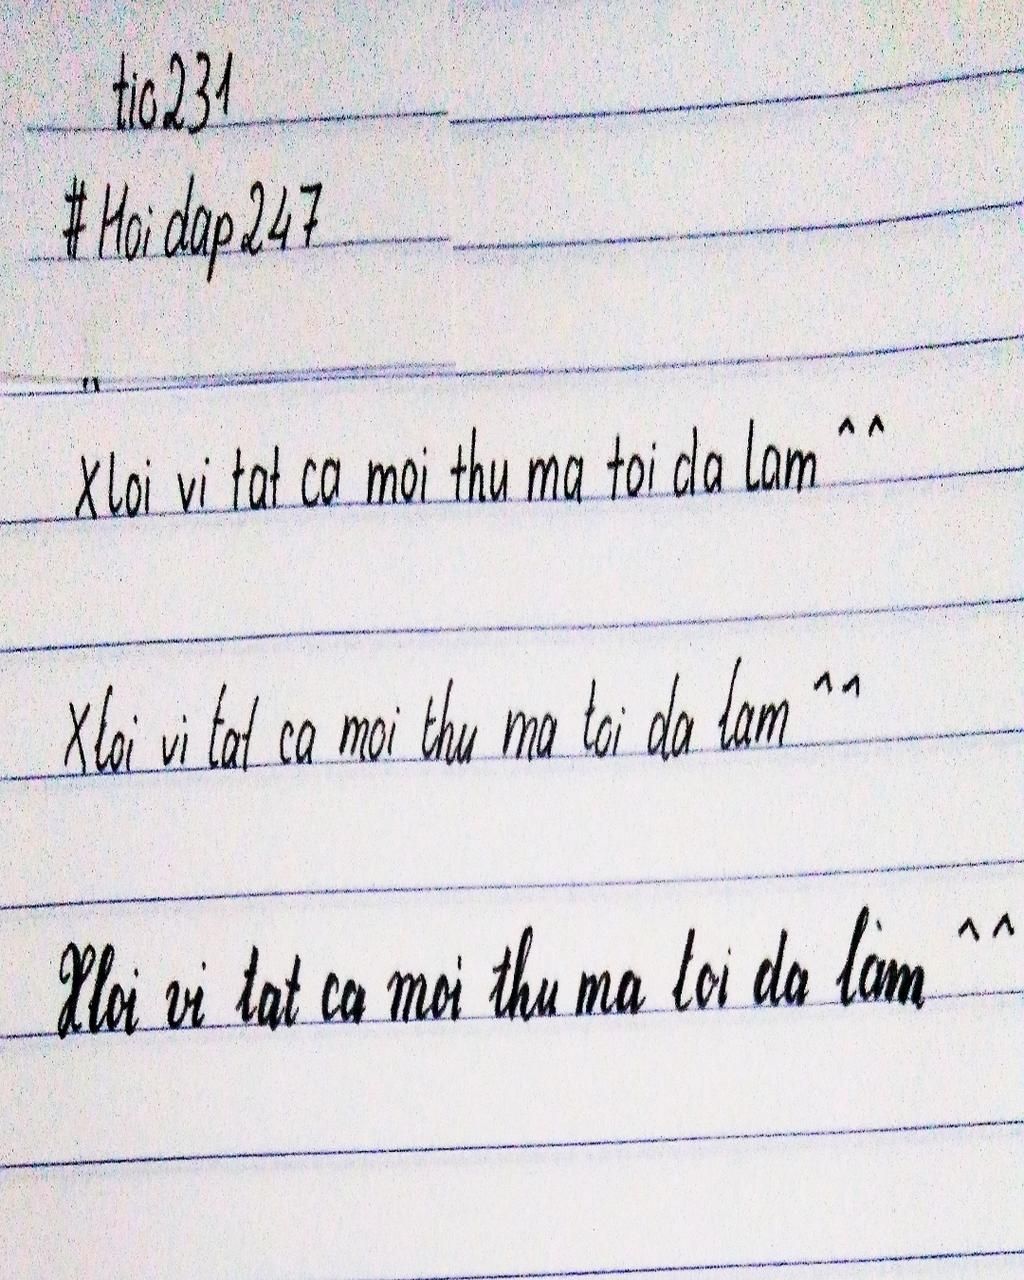 tic231
#Hoidap247
"
Xloi vi tat ca moi thu ma toi da lam ^^
Xloi vi tat ca moi thu ma toi da lam ^^
Xloi vi tat ca moi thu ma toi da lam ^^